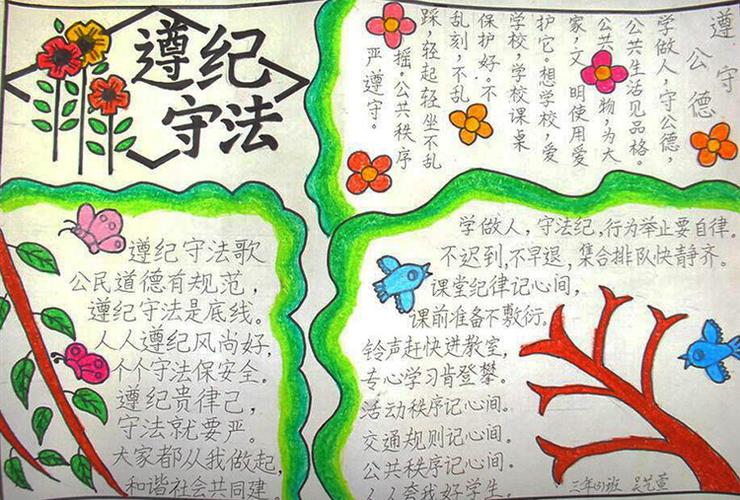 遵纪
守法
遵守公德
学做人，守公德，
公共生活见品格。
公共物，为大
家，文明使用爱
护它。想学校，爱
学校，学校课桌
保护好。不
乱刻，不乱
踩，轻起轻坐不乱
摇。公共秩序
严遵守。
遵纪守法歌
公民道德有规范，
遵纪守法是底线。
人人遵纪风尚好，
个个守法保安全。
遵纪贵律己，
守法就要严。
大家都从我做起，
和谐社会共同建。
学做人，守法纪，行为举止要自律。
不迟到，不早退，集合排队快静齐。
课堂纪律记心间，
课前准备不敷衍。
铃声赶快进教室，
专心学习肯登攀。
活动秩序记心间。
交通规则记心间。
公共秩序记心间。
人人夸我好学生。
三年(3)班 吴